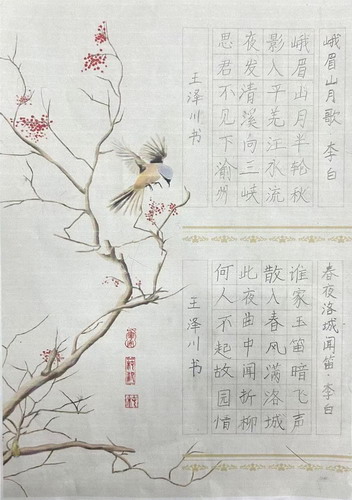 峨眉山月歌 李白
峨眉山月半轮秋
影入平羌江水流
夜发清溪向三峡
思君不见下渝州
王泽川书
春夜洛城闻笛·李白
谁家玉笛暗飞声
散入春风满洛城
此夜曲中闻折柳
何人不起故园情
王泽川书